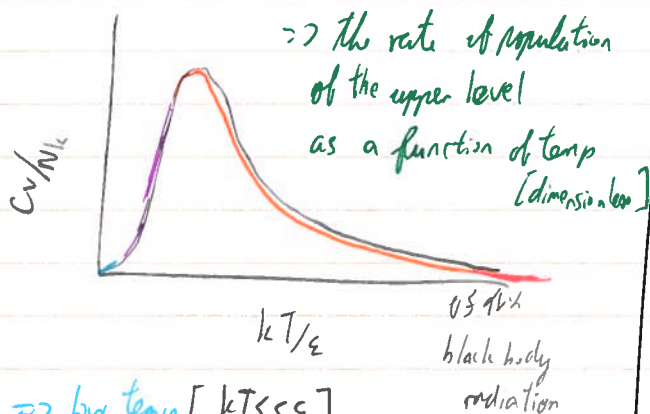 => the rate of population
of the upper level
as a function of temp
[dimensionless]
Cv/Nk
kT/ε
black body
radiation
=> low temp [ kT<<ε ]